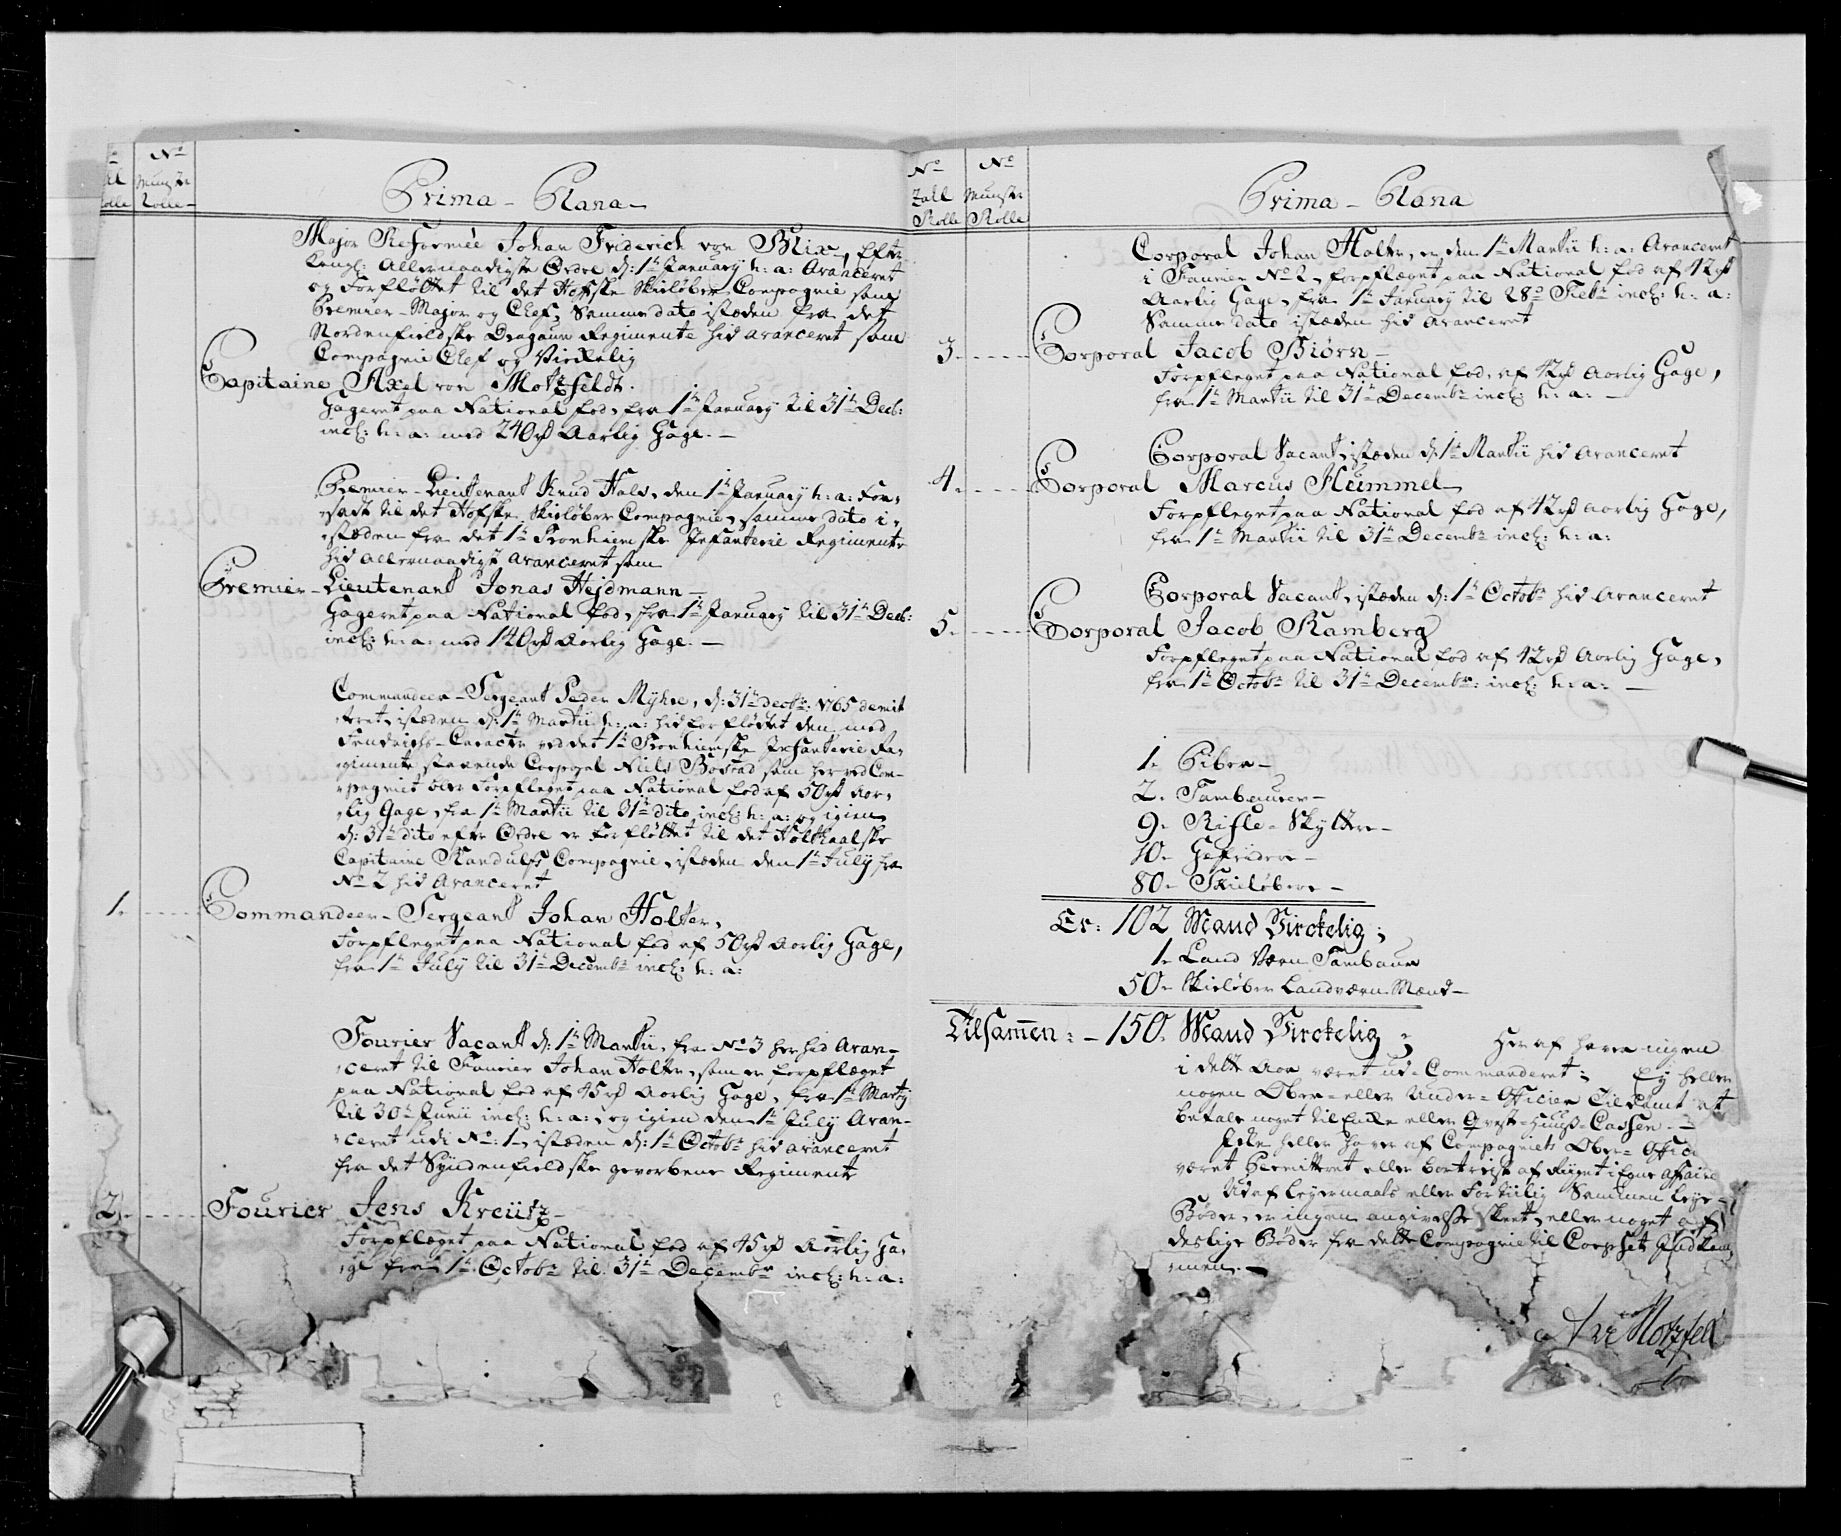 No
No
Munst:
Rolle
Prima - Plana
Major Reformeé Johan Friderich von Blix, efter
Kongl: Allernaadigste Ordre d: 1te January h: a: Avanceret
og Forfløttet til det Hofske Skieløber Compagnie som
Premier-Major og Chef, Samme dato isteden fra det
Nordenfieldske Dragaun Regimente hid avanceret som
Compagnie Chef og Virkelig
Capitaine Axel von Motzfeldt.
Gageret paa National fod, fra 1te January til 31te Decb:
incl: h: a: med 240 rd Aarlig Gage. —
Premier-Lieutenant Knud Hals, den 1te January h: a: For-
-sadt til det Hofske Skieløber Compagnie, samme dato i-
-steden fra det 1te Tronhiemske Infanterie Regimente
hid allernaadigst avanceret som
Premier-Lieutenant Jonas Hejdmann —
Gageret paa National fod, fra 1te January til 31te Decb:
incl: h: a: med 140 rd Aarlig Gage. —
Commandeer-Sergeant Peder Myhre, d: 31te decbr: 1765 demit
-teret, isteden d: 1te Martii h: a: hid forfløttet den med
Fendrichs-Caracter ved det 1te Tronhiemske Infanterie Re-
-gimente staaende Corporal Niels Bostad som her ved Com-
-pagniet blev Forpfleget paa National fod af 50 rd Aar-
-lig Gage, fra 1te Martii til 31te dito incl: h: a: og igien
d: 31te dito efter Ordre er forfløttet til det Holtaalske
Capitaine Randulfs Compagnie, isteden den 1te July fra
No 2 hid Avanceret
1. Commandeer-Sergeant Johan Holter,
Forpfleget paa National fod af 50 rd Aarlig Gage,
fra 1te July til 31te Decembr incl: h: a:
Fourier Vacant d: 1te Martii, fra No 3 her hid Avan-
-ceret til Fourier Johan Holter, som er forpflæget
paa National fod af 45 rd Aarlig Gage, fra 1te Martij
til 30te Junii incl: h: a:, og igien den 1te July Avan-
-ceret udi No: 1, isteden d: 1te Octobr hid avanceret
fra det Syndenfieldske gevorbene Regimente
2. Fourier Jens Kreütz —
Forpflæget paa National fod af 45 rd Aarlig Ga-
-ge fra 1te Octobr til 31te Decembr incl: h: a:
No
Tall
Rolle
No
Munst:
Rolle
Prima - Plana
Corporal Johan Holter, er den 1te Martii h: a: Avanceret
i Fourier No 2, forpflæget paa National fod af 42 rd
Aarlig Gage, fra 1te January til 28de Febr incl: h: a:
Samme dato isteden hid Avanceret
3. Corporal Jacob Biørn —
Forpfleget paa National fod, af 42 rd Aarlig Gage,
fra 1te Martii til 31te Decembr incl: h: a: —
Corporal Vacant, isteden d: 1te Martii hid Avanceret
4. Corporal Marcus Hummel
Forpfleget paa National fod af 42 rd Aarlig Gage,
fra 1te Martii til 31te Decembr incl: h: a:
Corporal Vacant, isteden d: 1te Octobr hid Avanceret
5. Corporal Jacob Ramberg
Forpfleget paa National fod af 42 rd Aarlig Gage,
fra 1te Octobr til 31te Decembr: incl: h: a: —
1. Piber —
2. Tambaurer —
9. Rifle-Skyttere —
10. Gefridere —
80. Skieløbere —
Er: 102 Mand Virckelig;
1. Land Værn Tambaur
50. Skieløber Landværn Mænd —
Tilsamen: — 150. Mand Virckelig;
Her af haver ingen
i dette Aar været ud-Commanderet; Ej heller
nogen Ober- eller Under-Officier tildømt at
betale noget til Enke eller Qvest-Huus-Cassen. —
Icke heller haver af Compagniets Ober-Offici
været Permitteret eller bortreist af Riiget i Egne Affaire
Ud af Leyermaals eller For tiilig Sammen Leye-
Bøder, er ingen angivelse skeet, eller noget af
deslige Bøder fra dette Compagnie til Corpset Indkom-
-men. —
Motzfeld